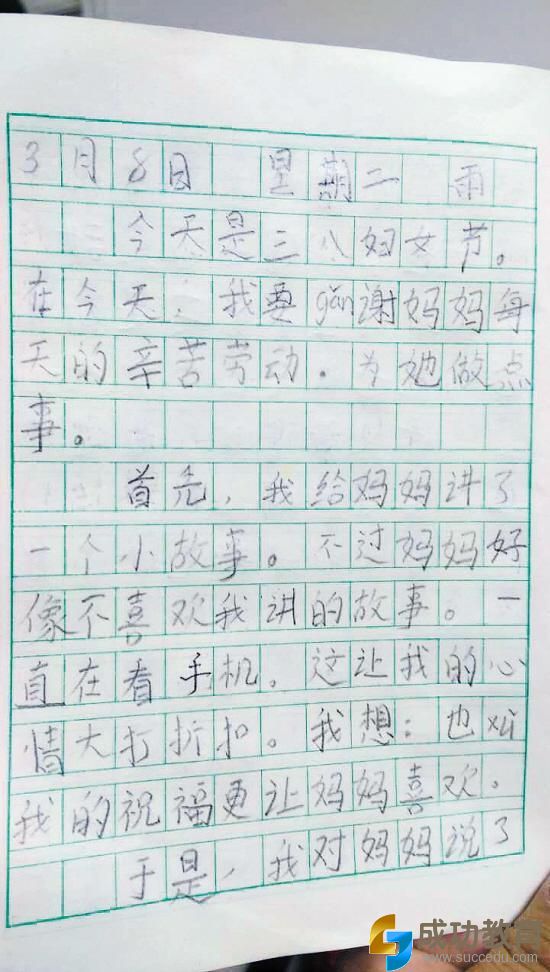 3月8日 星期二 雨
今天是三八妇女节。
在今天，我要gǎn谢妈妈每
天的辛苦劳动.为她做点
事。
首先，我给妈妈讲了
一个小故事。不过妈妈好
像不喜欢我讲的故事。一
直在看手机。这让我的心
情大打折扣。我想：也xǔ
我的祝福更让妈妈喜欢。
于是，我对妈妈说了
成功教育
www.succedu.com